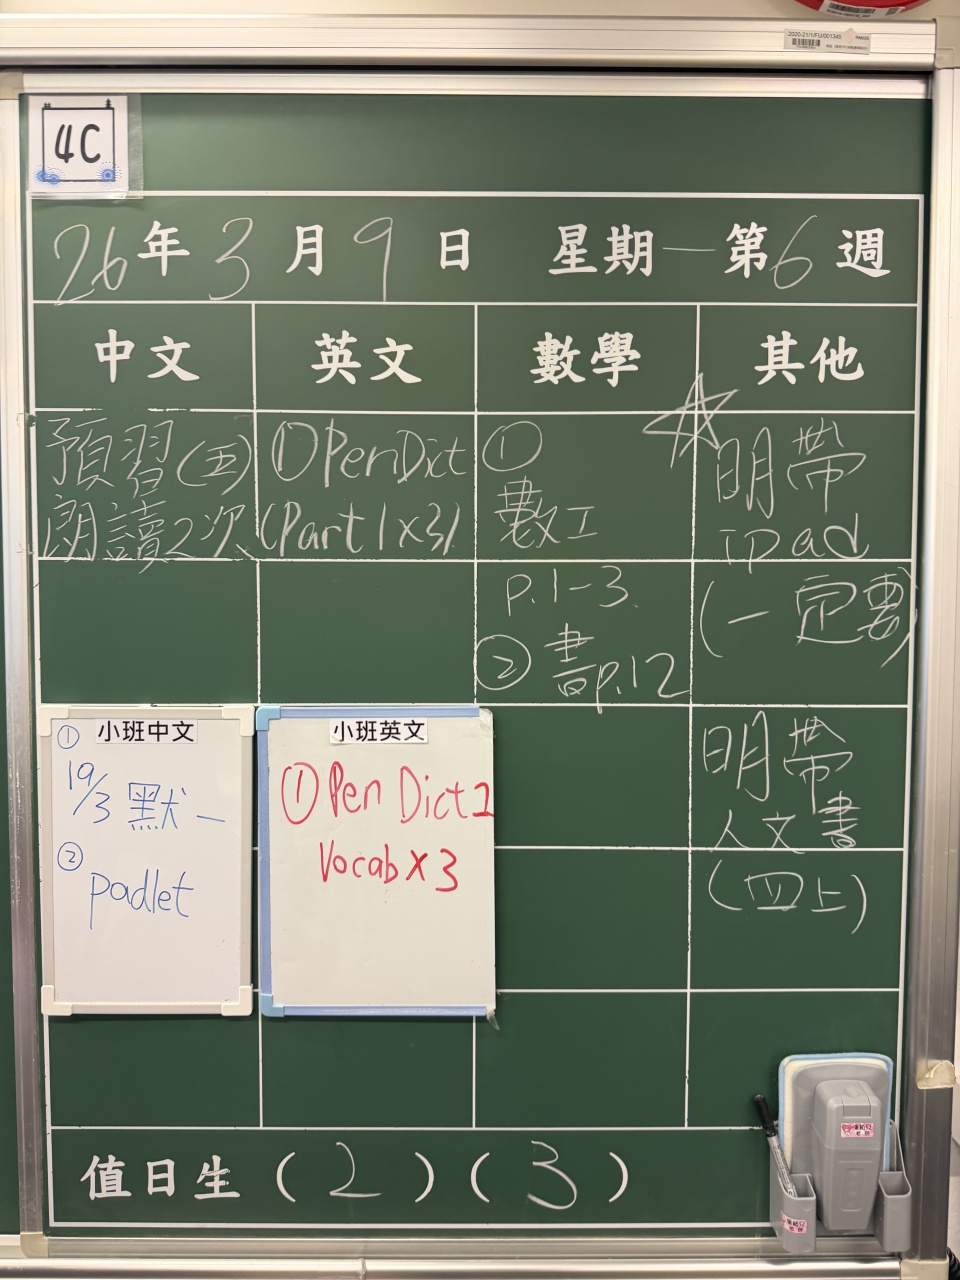 2020-21/1/FU/001345
4C
26年3月9日 星期一第6週
中文
英文
數學
其他
預習(五)
朗讀2次
①Pen Dict
(Part 1x3)
①
數工
p.1-3
②書p.12
☆明帶
ipad
(一定要)
明帶
人文書
(四上)
小班中文
①
19/3 默一
②
padlet
小班英文
①Pen Dict 1
Vocab x 3
值日生(2)(3)